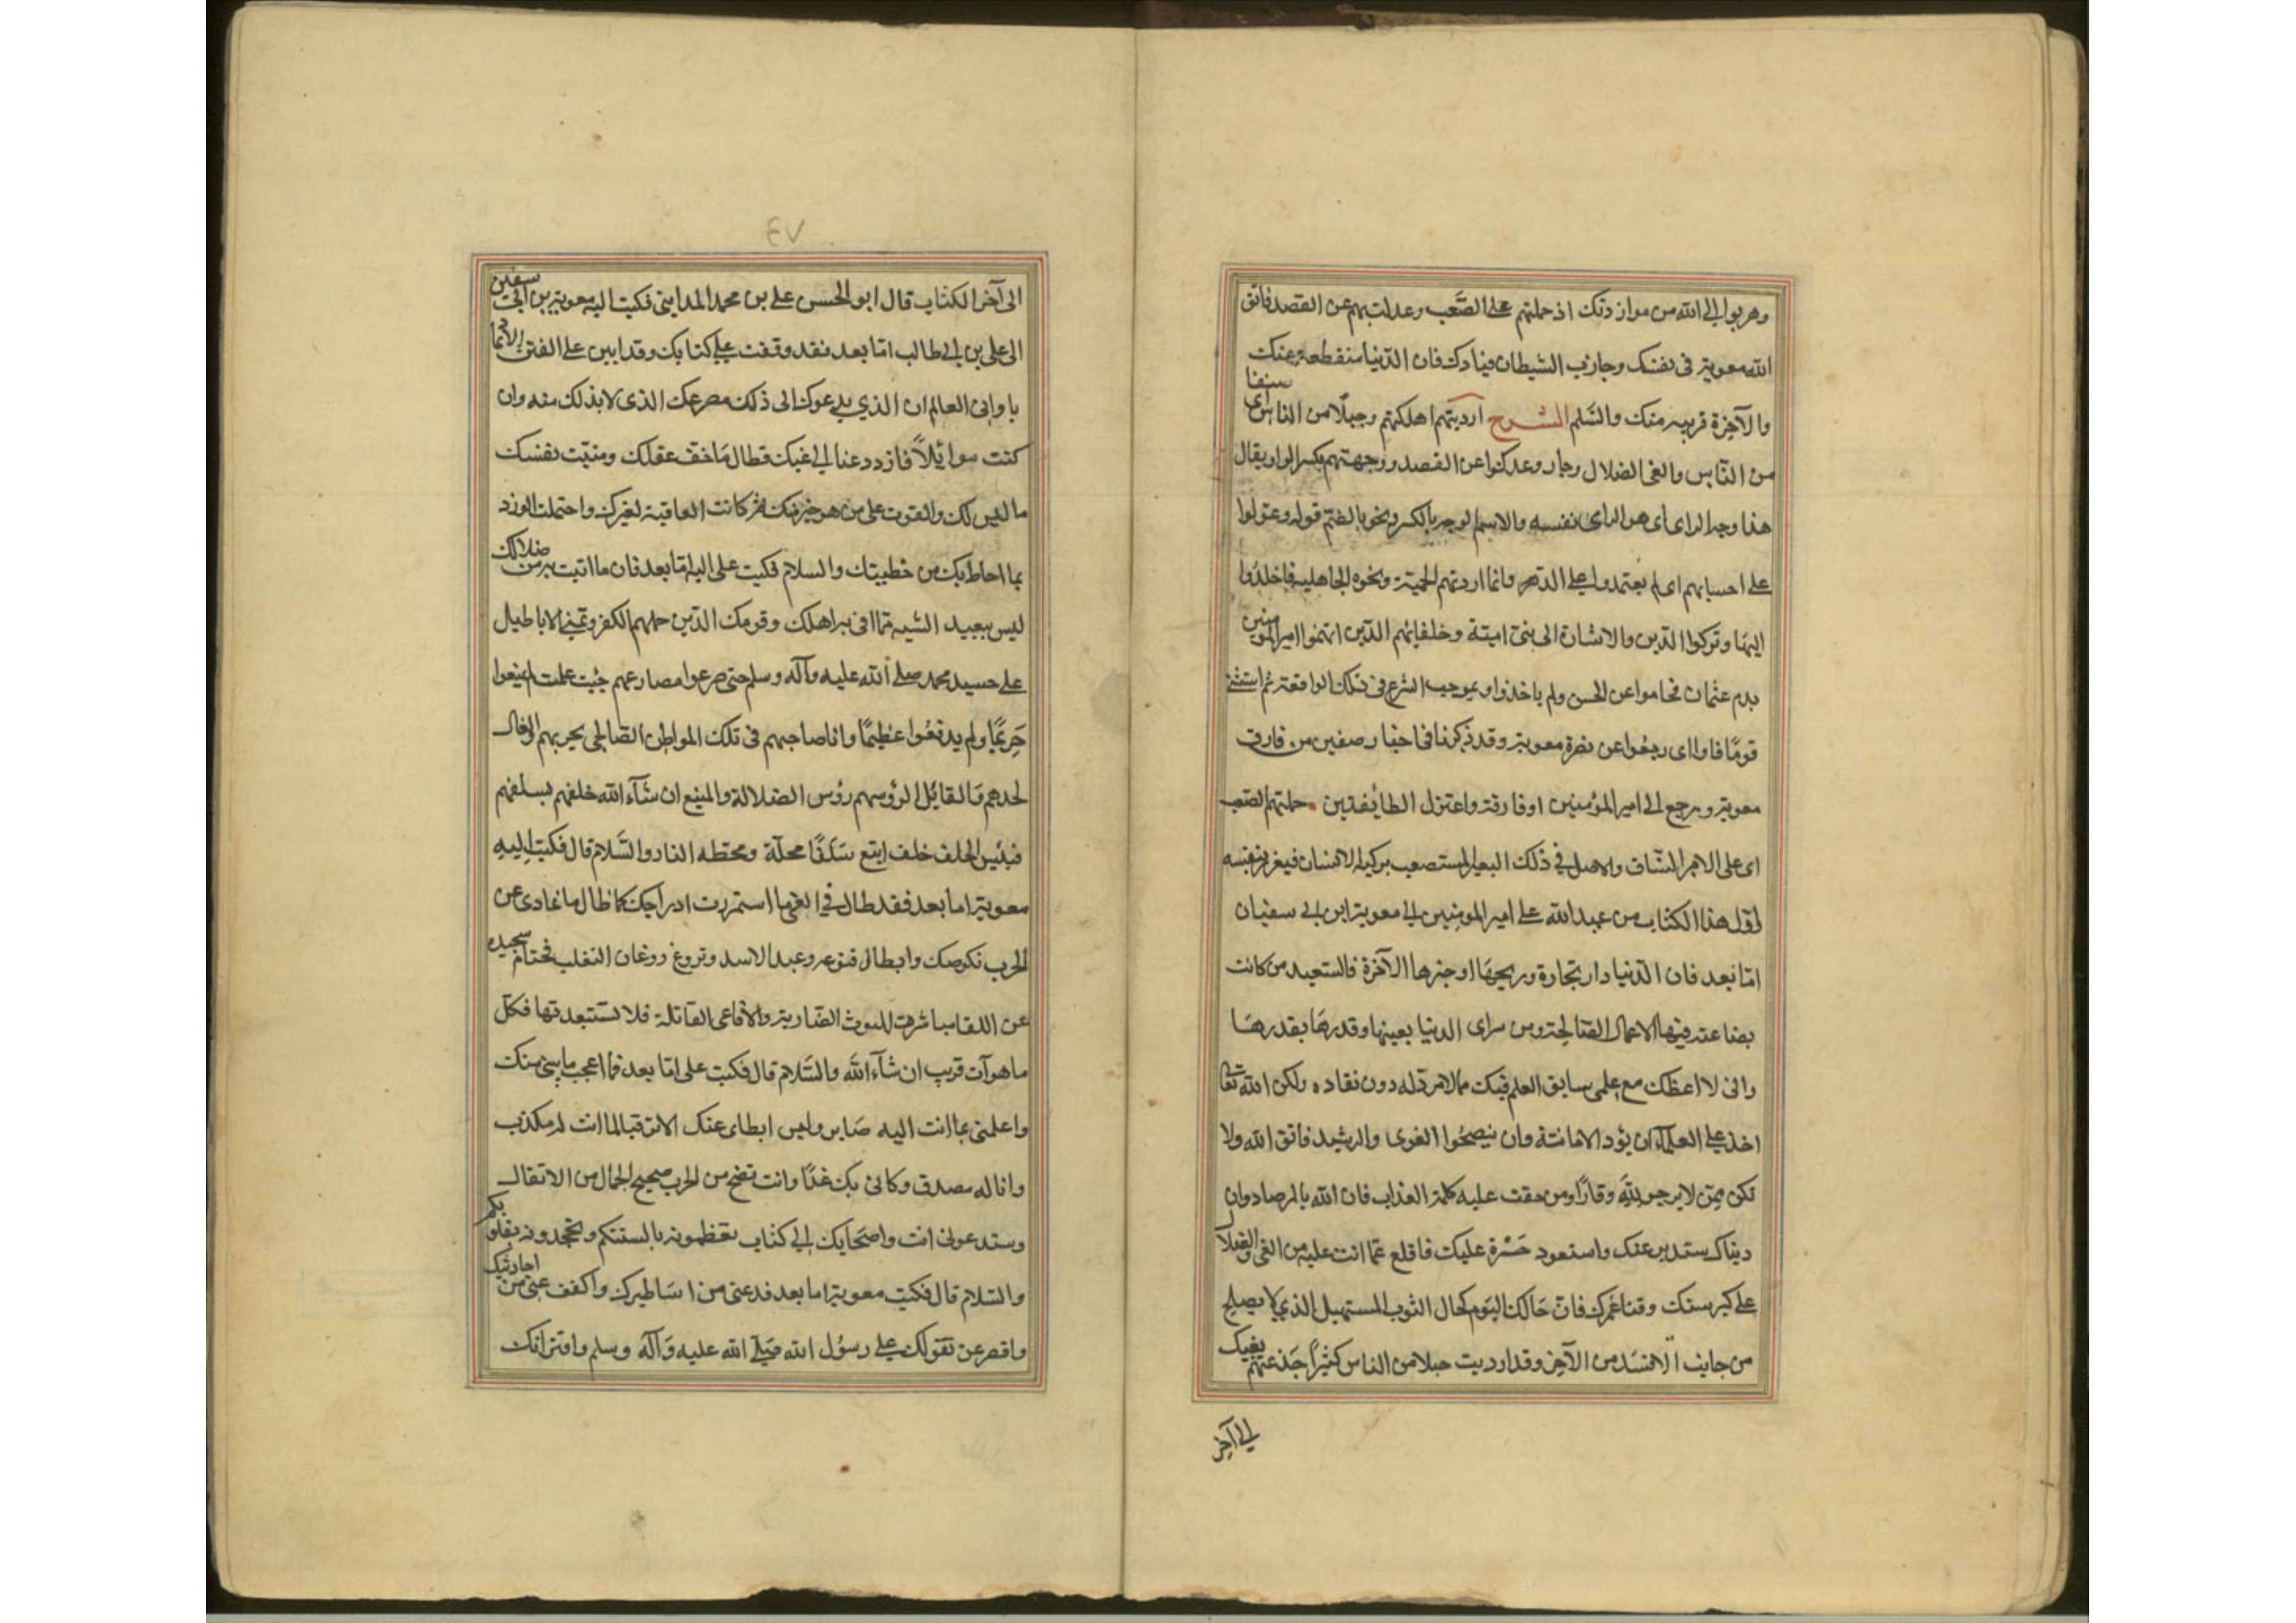 وهربوا الى الله من موازرتك اذ حملتهم على الصَّعب وعدلت بهم عن القصد فاتق
الله معوية فى نفسك وجاذب الشيطان قيادك فان الدّنيا منقطعة عنك
والآخرة قريبه منك والسَّلم الشرح ارديتهم اهلكتهم وجبلًا من الناس اى صنفا
من النّاس والغى الضلال وجاروا عدلوا عن القصد ووجهتهم بكسر الواو يقال
هذا وجه الراى اى هو الراى نفسه والاسم الوجه بالكسر ويجوز بالضم قوله وعولوا
على احسابهم اى لم يعتمدوا على الدين وانما اردتهم الحمية ونخوة الجاهلية فاخلدوا
اليها وتركوا الدّين والاشارة الى بنى امية وخلفائهم الذّين اتهموا امير المومنين
بدم عثمان فحاموا عن الحسن ولم ياخذوا بموجب الشرع فى تلك الواقعة ثم استثنى
قومًا فاوا اى رجعوا عن نصرة معوية وقد ذكرنا فى اخبار صفين من فارق
معوية ورجع الى امير المؤمنين اوفارقه واعتزل الطائفتين حملتهم الصعب
اى على الامر الشاق والاصل فى ذلك البعير المستصعب يركبه الانسان فيغرر بنفسه
اوّل هذا الكتاب من عبد الله على امير المومنين الى معوية ابن ابى سفيان
امّا بعد فان الدّنيا دار تجارة وربحها اوجنرها الآخرة فالسعيد من كانت
بضاعته فيها الاعمال الصّالحة ومن راى الدنيا بعينها وقدرها بقدرها
وانى لا اعظك مع علمى سابق العلم فيك مما لا مردّ له دون نفاده ولكن الله تعالى
اخذ على العلماء ان يؤد الامانة وان ينصحوا الغوى والرشيد فاتق الله ولا
تكن ممّن لا يرجو لله وقارًا ومن حقت عليه كلمة العذاب فان الله بالمرصاد وان
دنياك ستدبر عنك واستعود حَسْرة عليك فاقلع عمّا انت عليه من الغى والضلال
على كبر سنك وفنا عمرك فان حالك اليوم كحال الثوب المستهيل الذى لا يصلح
من جانب الا فسَد من الآخر وقد ارديت جبلا من الناس كثيرًا خدعتهم بغيك
الى آخر
الى آخر الكتاب قال ابو الحسن على بن محمد المداينى فكتب اليه معوية بن ابى سفين
الى على بن ابى طالب امّا بعد فقد وقفت على كتابك وقد ابيت على الفتن الاتما
با وانى العالم ان الذي يدعوك الى ذلك مصرعك الذى لا بد لك منه وان
كنت موائلًا فازدد عنا الى غيك فطال مَا خف عقلك ومنيّت نفسك
ما ليس لك والتويت على من هو خير منك ثم كانت العاقبة لغيرك واحتملت الوزر
بما احاط بك من خطيتك والسلام فكتب على اليه امّا بعد فان ما اتيت به من ضلالك
ليس ببعيد الشبه ممّا اتى به اهلك وقومك الذين حملهم الكفر وتمنى الاباطيل
على حسد محمد صلى الله عليه وآله وسلم حتى صرعوا مصارعهم حيث علمت لم يمنعوا
حَريمًا ولم يدفعُوا عظيمًا وانا صاحبهم فى تلك المواطن الصّالى بحربهم والفال
لحدهم وَالقاتل لرؤسهم رؤس الضلالة والمتبع ان شآء الله خلفهم بسلفهم
فبئس الخلف خلف اتبع سَلفًا محلّه ومحطه النار والسَّلام قال فكتب اليهِ
معوية اما بعد فقد طال فى الغى ما استمررت ادراجك كما طال ما تمادى عن
الحرب نكوصك وابطاك فتوعد وعيد الاسد وتروغ روغان الثعلب فحتام تحيد
عن اللقا ومباشرة الليوث الضّارية والافاعى القاتلة فلا تستبعدنها فكل
ما هو آت قريب ان شآء الله والسَّلام قال فكتب على امّا بعد فما اعجب ما ياتينى منك
واعلمنى بما انت اليه صَاير وليس ابطاى عنك الا ترقبا لما انت له مكذب
وانا له مصدق وكانى بك غدًا وانت تضج من الحرب ضجيج الجمال من الاثقال
وستدعونى انت واصحَابك الى كتاب تعظمونه بالسنتكم وتجحدونه بقلوبكم
والسّلام قال فكتب معوية اما بعد فدعنى من اسَاطيرك واكفف عنى من احاديثك
واقصر عن تقولك على رسُول الله صَلى الله عليه وَآله وسلم وافترائك